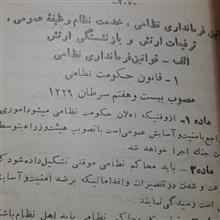 -۲۰۷-
قوانین فرمانداری نظامی، خدمت نظام وظیفهٔ عمومی،
ترفیعات ارتش و بازنشستگی ارتش
الف - قوانین فرمانداری نظامی
۱- قانون حکومت نظامی
مصوب بیست و هفتم سرطان ۱۲۲۹
ماده ۱- ازوقتیکه اعلان حکومت نظامی میشود امور
راجع بامنیت و آسایش عمومی است با تصویب هیئت وزراء بتوسط
جنگ اجرا خواهد شد.
ماده ۲- باید محاکم نظامی موقتی تشکیل داده شود که
و شدت در تقصیرات و اقداماتیکه برضد امنیت و آسایش
است رسیدگی نماید.
محاکم نظامی باید اهل نظام باشند